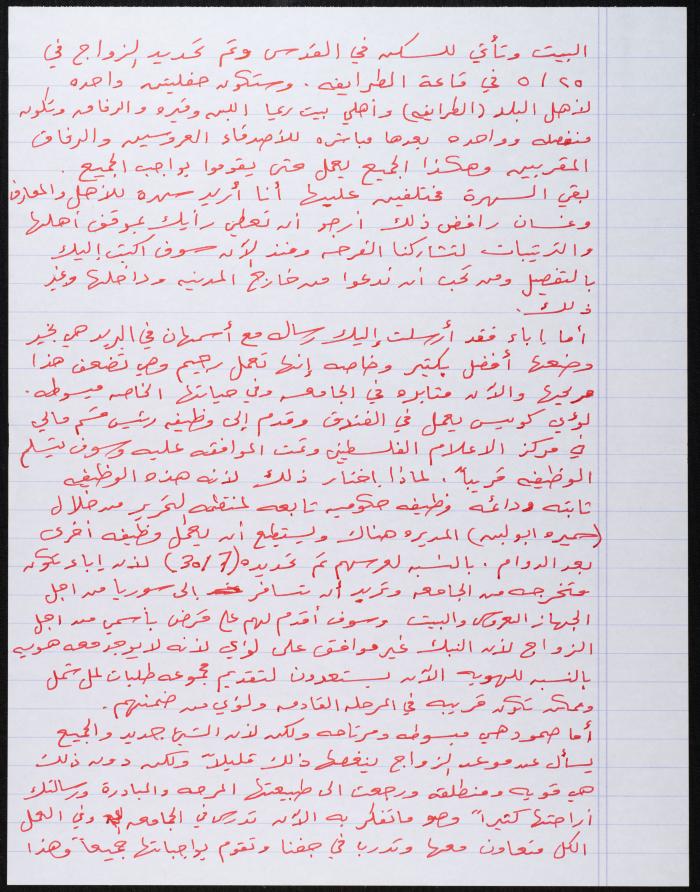 البيت وتأتي للسكن في القدس وتم تحديد الزواج في
٢٥ / ٥ في قاعة الطرايفه . وستكون حفلتين واحده
لأهل البلد (الطرايفه) وأهلي بيت ريما اللبن وقيره والرفاق وتكون
منفصله وواحده بعدها مباشره للأصدقاء العروسين والرفاق
المقربين وهكذا الجميع يعمل حتى يقوموا بواجب الجميع .
بقي السهرة مختلفين عليها أنا أريد سهره للأهل والمعارف
وغسان رافض ذلك أرجو أن تعطي رأيك بموقف أهلها
والترتيبات لتشاركنا الفرحه ومنذ الآن سوف اكتب إليك
بالتفصيل ومن تحب أن ندعوا من خارج المدينه وداخلها وغير
ذلك .
أما إباء فقد أرسلت إليك رساله مع أسمهان في البريد هي بخير
وضعها أفضل بكثير وخاصه إنها تعمل رجيم وهي تضعف هذا
مريحها والآن مثابره في الجامعه وفي حياتها الخاصه مبسوطه .
لؤي كويس يعمل في الفندق وقدم إلى وظيفه رئيس قسم مالي
في مركز الاعلام الفلسطيني وتمت الموافقه عليه وسوف يتسلم
الوظيفه قريباً . لماذا اختار ذلك لأنه هذه الوظيفه
ثابته ودائمه وظيفه حكوميه تابعه لمنظمه التحرير من خلال
(سميره ابو لبن) المديره هناك ويستطيع أن يعمل وظيفه أخرى
بعد الدوام . بالنسبه لعرسهم تم تحديده (30/7) لأن إباء تكون
متخرجه من الجامعه وتريد أن تسافر إلى سوريا من اجل
الجهاز العروس والبيت وسوف أقدم لهم على قرض بأسمي من اجل
الزواج لأن البنك غير موافق على لؤي لأنه لا يوجد معه هويه
بالنسبه للهويه الآن يستعدون لتقديم مجموعه طلبات لم شمل
وممكن تكون قريبه في المرحله القادمه ولؤي من ضمنهم .
أما صمود هي مبسوطه ومرتاحه ولكن لأن الشي جديد والجميع
يسأل عن موعد الزواج ينغصها ذلك قليلاً ولكن دون ذلك
هي قويه ومنطلقه ورجعت الى طبيعتها المرحه والمبادرة ورسالتك
أراحتها كثيراً وهو ما تفكر به الآن تدرس في الجامعه وفي العمل
الكل متعاون معها وتدرب في جفنا وتقوم بواجباتها جميعاً وهذا